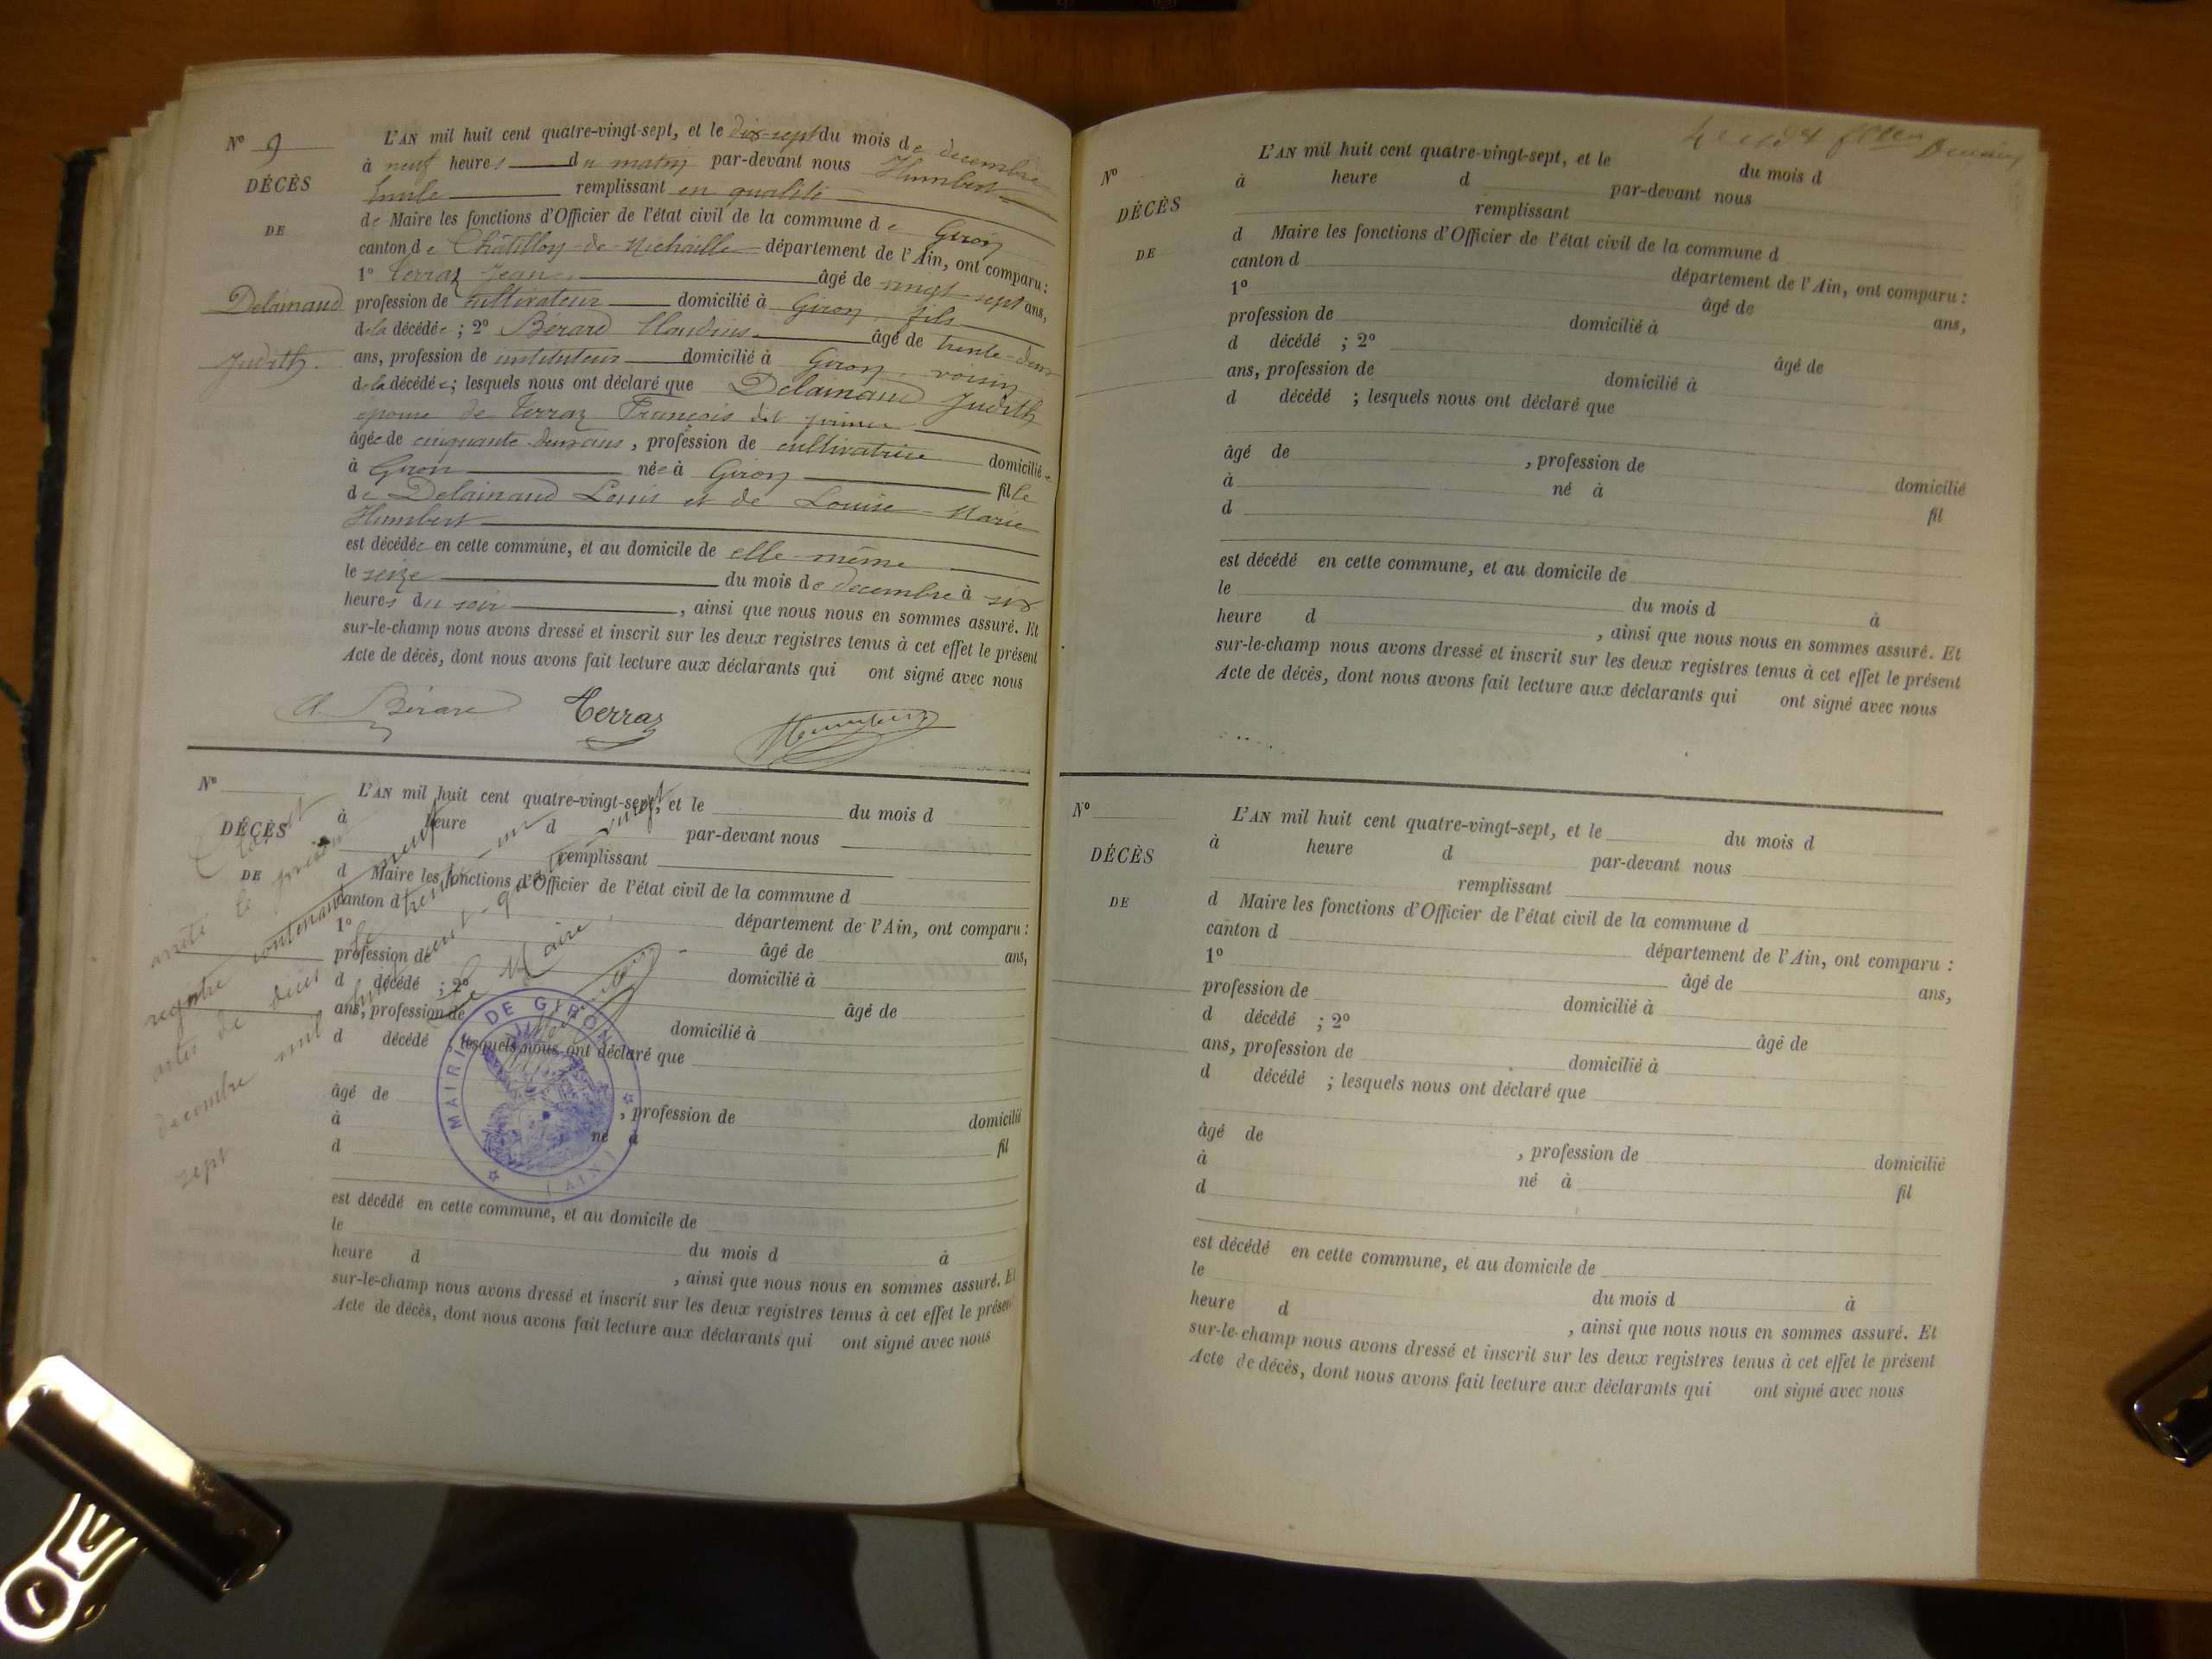 N° 9
DÉCÈS
DE
Delainaud
Judith.
L'AN mil huit cent quatre-vingt-sept, et le dix-sept du mois de decembre
à neuf heures du matin par-devant nous Humbert
Emile remplissant en qualité
de Maire les fonctions d'Officier de l'état civil de la commune de Giron
canton de Châtillon-de-Michaille département de l'Ain, ont comparu :
1° Terraz Jean. âgé de vingt-sept ans,
profession de cultivateur domicilié à Giron, fils
de la décédée ; 2° Bérard Claudius. âgé de trente-deux
ans, profession de instituteur domicilié à Giron, voisin
de la décédée ; lesquels nous ont déclaré que Delainaud Judith
epouse de Terraz François dit
âgée de cinquante-deux ans, profession de cultivatrice domiciliée
à Giron née à Giron fille
de Delainaud Louis et de Louise-Marie
Humbert
est décédée en cette commune, et au domicile de elle-même
le seize du mois de decembre à six
heures du soir, ainsi que nous nous en sommes assuré. Et
sur-le-champ nous avons dressé et inscrit sur les deux registres tenus à cet effet le présent
Acte de décès, dont nous avons fait lecture aux déclarants qui ont signé avec nous
Cl. Bérard Terraz Humbert
N°
DÉCÈS
DE
L'AN mil huit cent quatre-vingt-sept, et le du mois d
à heure d par-devant nous
remplissant
d Maire les fonctions d'Officier de l'état civil de la commune d
canton d département de l'Ain, ont comparu :
1° âgé de ans,
profession de domicilié à
d décédé ; 2° âgé de
ans, profession de domicilié à
d décédé ; lesquels nous ont déclaré que
âgé de , profession de domicilié
à né à fil
d
est décédé en cette commune, et au domicile de
le du mois d à
heure d , ainsi que nous nous en sommes assuré. Et
sur-le-champ nous avons dressé et inscrit sur les deux registres tenus à cet effet le présent
Acte de décès, dont nous avons fait lecture aux déclarants qui ont signé avec nous
Clos et
arrêté le présent
registre contenant neuf
actes de décès le trente-un
decembre mil huit cent quatre-vingt
sept
Le Maire
MAIRIE DE GIRON
(AIN)
N°
DÉCÈS
DE
L'AN mil huit cent quatre-vingt-sept, et le du mois d
à heure d par-devant nous
remplissant
d Maire les fonctions d'Officier de l'état civil de la commune d
canton d département de l'Ain, ont comparu :
1° âgé de ans,
profession de domicilié à
d décédé ; 2° âgé de
ans, profession de domicilié à
d décédé ; lesquels nous ont déclaré que
âgé de , profession de domicilié
à né à fil
d
est décédé en cette commune, et au domicile de
le du mois d à
heure d , ainsi que nous nous en sommes assuré. Et
sur-le-champ nous avons dressé et inscrit sur les deux registres tenus à cet effet le présent
Acte de décès, dont nous avons fait lecture aux déclarants qui ont signé avec nous
N°
DÉCÈS
DE
L'AN mil huit cent quatre-vingt-sept, et le du mois d
à heure d par-devant nous
remplissant
d Maire les fonctions d'Officier de l'état civil de la commune d
canton d département de l'Ain, ont comparu :
1° âgé de ans,
profession de domicilié à
d décédé ; 2° âgé de
ans, profession de domicilié à
d décédé ; lesquels nous ont déclaré que
âgé de , profession de domicilié
à né à fil
d
est décédé en cette commune, et au domicile de
le du mois d à
heure d , ainsi que nous nous en sommes assuré. Et
sur-le-champ nous avons dressé et inscrit sur les deux registres tenus à cet effet le présent
Acte de décès, dont nous avons fait lecture aux déclarants qui ont signé avec nous